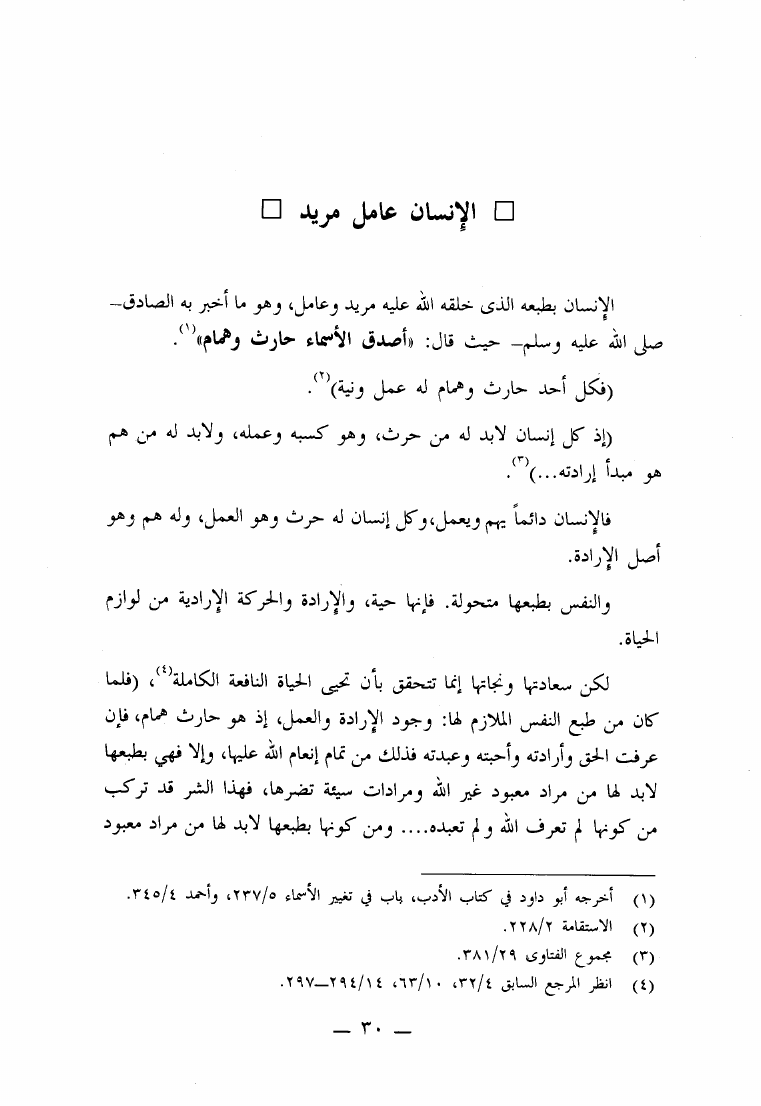 □ الإنسان عامل مريد □
الإنسان بطبعه الذى خلقه الله عليه مريد وعامل، وهو ما أخبر به الصادق–
صلى الله عليه وسلم– حيث قال: «أصدق الأسماء حارث وهمام»(١).
(فكل أحد حارث وهمام له عمل ونية)(٢).
(إذ كل إنسان لابد له من حرث، وهو كسبه وعمله، ولابد له من هم
هو مبدأ إرادته...)(٣).
فالإنسان دائماً يهم ويعمل، وكل إنسان له حرث وهو العمل، وله هم وهو
أصل الإرادة.
والنفس بطبعها متحولة. فإنها حية، والإرادة والحركة الإرادية من لوازم
الحياة.
لكن سعادتها ونجاتها إنما تتحقق بأن تحيى الحياة النافعة الكاملة(٤)، (فلما
كان من طبع النفس الملازم لها: وجود الإرادة والعمل، إذ هو حارث همام، فإن
عرفت الحق وأرادته وأحبته وعبدته فذلك من تمام إنعام الله عليها، وإلا فهي بطبعها
لابد لها من مراد معبود غير الله ومرادات سيئة تضرها، فهذا الشر قد تركب
من كونها لم تعرف الله ولم تعبده.... ومن كونها بطبعها لابد لها من مراد معبود
(١) أخرجه أبو داود في كتاب الأدب، باب في تغيير الأسماء ٢٣٧/٥، وأحمد ٣٤٥/٤.
(٢) الاستقامة ٢٢٨/٢.
(٣) مجموع الفتاوى ٣٨١/٢٩.
(٤) انظر المرجع السابق ٣٢/٤، ٦٣/١٠، ٢٩٤/١٤–٢٩٧.
— ٣٠ —